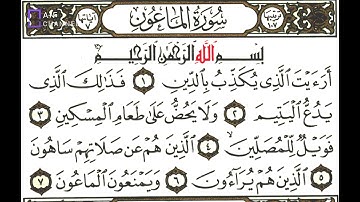 سُورَةُ الْمَاعُونِ
بِسْمِ اللَّهِ الرَّحْمَٰنِ الرَّحِيمِ
أَرَءَيْتَ الَّذِي يُكَذِّبُ بِالدِّينِ ١ فَذَٰلِكَ الَّذِي
يَدُعُّ الْيَتِيمَ ٢ وَلَا يَحُضُّ عَلَىٰ طَعَامِ الْمِسْكِينِ ٣
فَوَيْلٌ لِّلْمُصَلِّينَ ٤ الَّذِينَ هُمْ عَن صَلَاتِهِمْ سَاهُونَ
٥ الَّذِينَ هُمْ يُرَاءُونَ ٦ وَيَمْنَعُونَ الْمَاعُونَ ٧